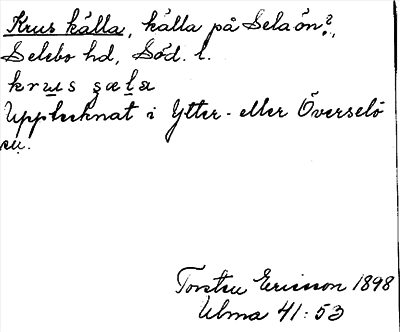 Krus källa, källa på Selaön?,
Selebo hd, Söd. l.
krus
Upptecknat i Ytter- eller Överselö
sn.
Torsten Ericsson 1898
Ulma 41:53